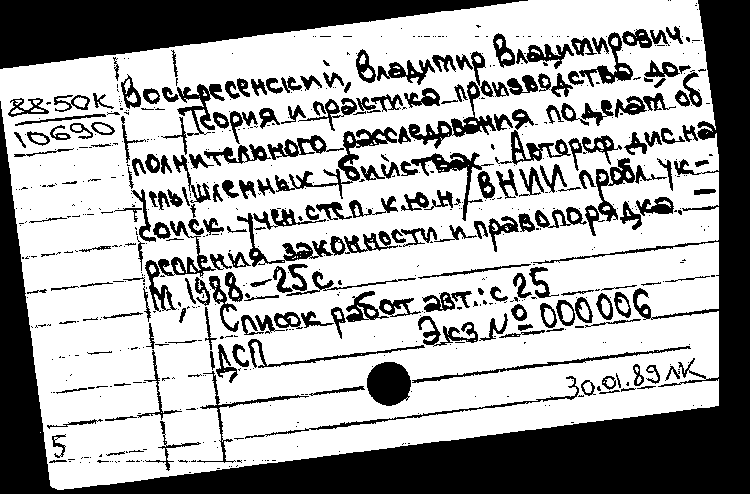 88-50К
10690
Воскресенский, Владимир Владимирович.
Теория и практика производства до-
полнительного расследования по делам об
умышленных убийствах : Автореф. дис. на
соиск. учен. степ. к.ю.н. / ВНИИ пробл. ук-
репления законности и правопорядка. –
М., 1988. – 25 с.
Список работ авт.: с 25
ДСП Экз № 000006
30.01.89 ЛК
5